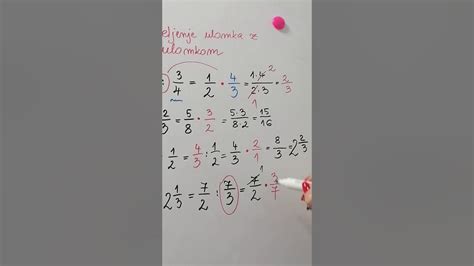 eljenje ulomka z
ulomkom
: 3/4 = 1/2 · 4/3 = 1·4 2/2·3 1 = 2/3
2/3 = 5/8 · 3/2 = 5·3/8·2 = 15/16
1/2 = 4/3 : 1/2 = 4/3 · 2/1 = 8/3 = 2 2/3
2 1/3 = 7/2 : 7/3 = 7 1/2 · 3/7